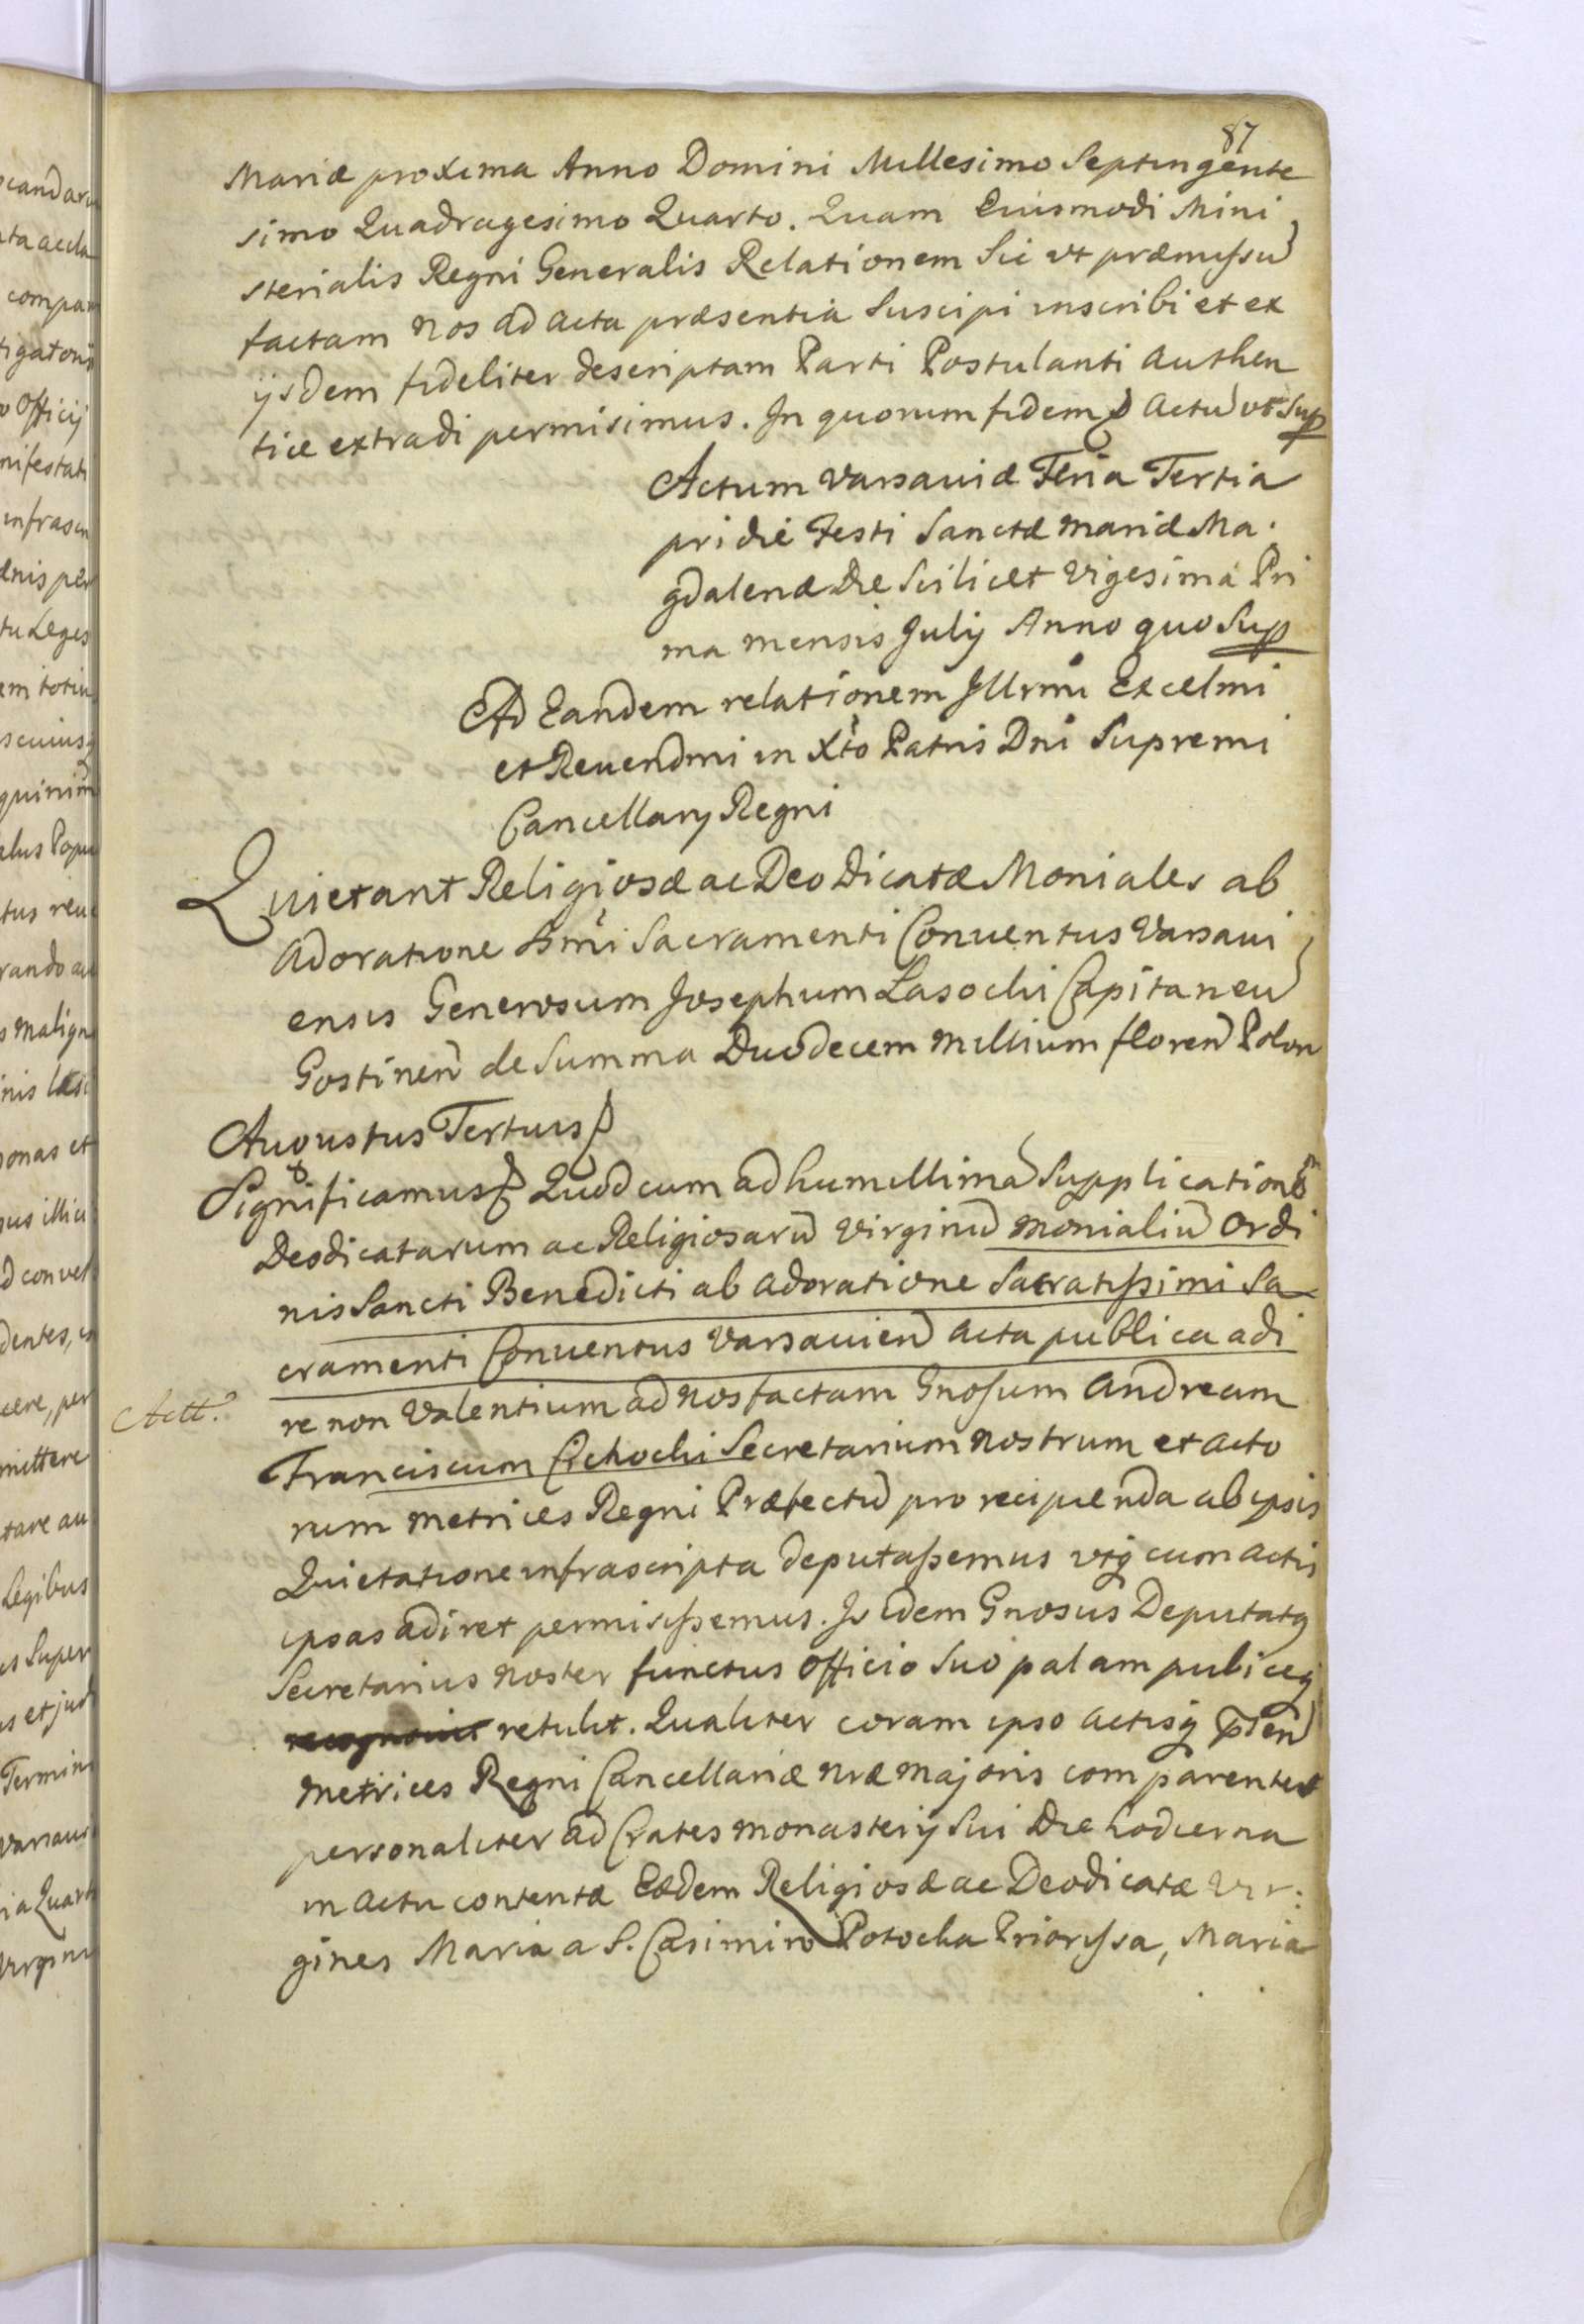 87
Mariæ proxima Anno Domini Millesimo Septingente
simo Quadragesimo Quarto. Quam Eiusmodi Mini
sterialis Regni Generalis Relationem Sic vt præmissu
factam nos ad acta præsentia Suscipi inscribi et ex
ijsdem fideliter descriptam Parti Postulanti Authen
tice extradi permisimus. In quorum fidem Actu vt Sup
Actum Varsaviæ Feria Tertia
pridie Festi Sanctæ Mariæ Ma
gdalenæ Die Scilicet Vigesima Pri
ma mensis Julij Anno quo Sup
Ad Eandem relationem Illrmi Excelmi
et Reuendmi in Xto Patris Dni Supremi
Cancellarij Regni
Quietant Religiosæ ac Deo Dicatæ Moniales ab
Adoratione Ssmi Sacramenti Conuentus Varsaui
ensis Generosum Josephum Lasocki Capitaneu
Gostinen de Summa Duodecem Millium floren Polon
Augustus Tertius
Significamus Quod cum ad humillima Supplication
Deodicatarum ac Religiosaru Virginu monialiu Ordi
nis Sancti Benedicti ab Adoratione Sacratissimi Sa
cramenti Conuentus Varsauien acta publica adi
re non Valentium ad nos factam Gnosum Andream
Actt.
Franciscum Cichocki Secretarium Nostrum et Acto
rum metrices Regni Præfectu pro recipienda ab ipsis
Quietatione infrascripta deputassemus vtq cum actis
ipsas adiret permisissemus. Is idem Gnosus Deputatq
Secretarius noster functus officio Suo palam publiceq
retulit. Qualiter coram ipso actisq pnten
Metrices Regni Cancellariæ nræ Majoris comparentes
personaliter ad Crates monasterij Sui Die hodierna
in actu contentæ Eædem Religiosæ ac Deodicatæ Vir
gines Maria a S. Casimiro Potocka Priorissa, Maria